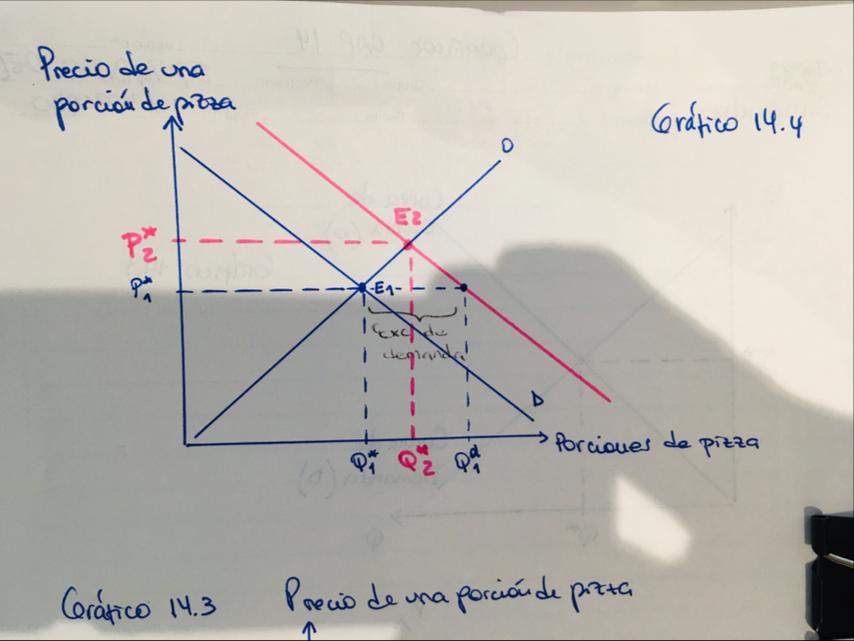 Precio de una
porción de pizza
Gráfico 14.4
O
E2
P2*
P1*
E1
Exc. de
demanda
D
Q1*
Q2*
Q1d
Porciones de pizza
Gráfico 14.3
Precio de una porción de pizza